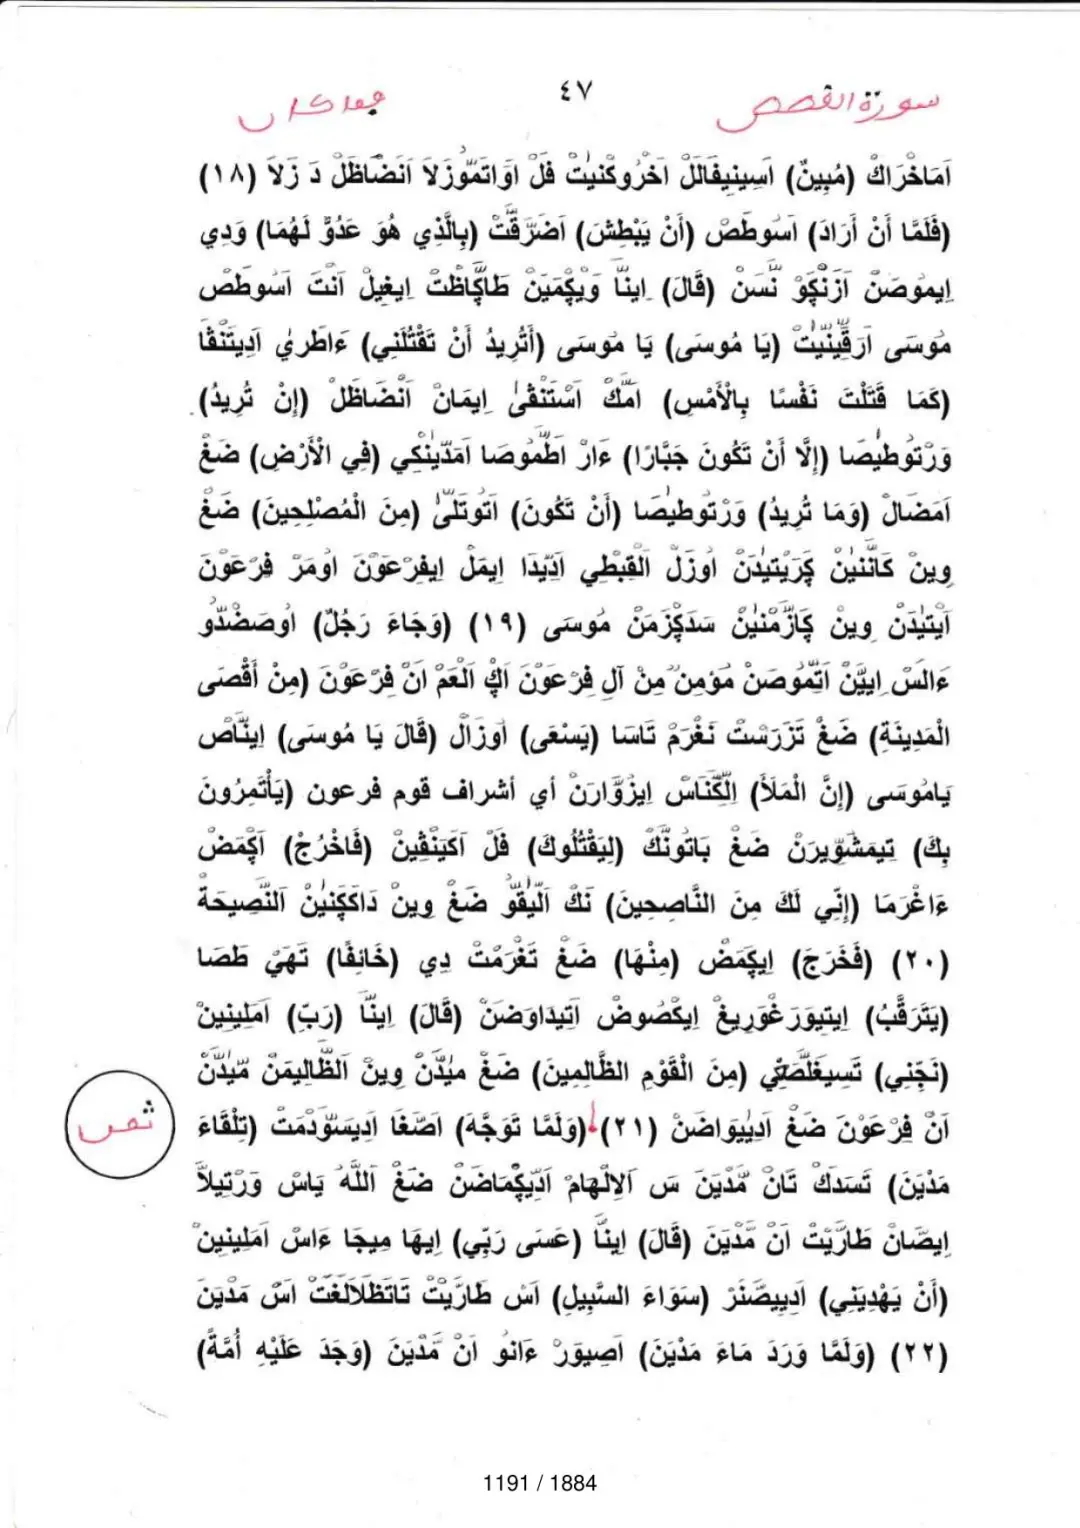 سورة القصص ٤٧
اَمَاخْرَاكْ (مُبِينٌ) اَسِينِيفَالَلْ اَخْرُوكْنِيَتْ فَلْ اوَاتَمُّوزَلاَ اَنَضَاظَلْ دَ زَلاَ (١٨)
(فَلَمَّا أَنْ أَرَادَ) اَسُوطَصْ (أَنْ يَبْطِشَ) اَضَرَقَّتْ (بِالَّذِي هُوَ عَدُوٌّ لَهُمَا) وَدِي
اِيمُوصَنْ اَزَنْكَوْ نَّسَنْ (قَالَ) اِينَّا وَيِكْمَيَنْ طَاكَّاظَتْ اِيغِيلْ اَنْتَ اَسُوطَصْ
مُوسَى اَرَقِّينِيَتْ (يَا مُوسَى) يَا مُوسَى (أَتُرِيدُ أَنْ تَقْتُلَنِي) ءَاطَرِي اَدِيتَنْقَا
(كَمَا قَتَلْتَ نَفْسًا بِالْأَمْسِ) اَمَّكْ اَسْتَنْقَى اِيمَانْ اَنْضَاظَلْ (إِنْ تُرِيدُ)
وَرْتُوطِيصَا (إِلَّا أَنْ تَكُونَ جَبَّارًا) ءَارْ اَطَّمُوصَا اَمَدَّينَكِي (فِي الْأَرْضِ) ضَغْ
اَمَضَالْ (وَمَا تُرِيدُ) وَرْتُوطِيصَا (أَنْ تَكُونَ) اَتُوتَلَّى (مِنَ الْمُصْلِحِينَ) ضَغْ
وِينْ كَانَّنِينْ كَرَيْتِيدَنْ اُوزَلْ اَلْقِبْطِي اَدِّيدَا اِيمَلْ اِيفِرْعَوْنَ اُومَرْ فِرْعَوْنَ
اَيْتِيدَنْ وِينْ كَازَّمْنِينْ سَدَكْزَمَنْ مُوسَى (١٩) (وَجَاءَ رَجُلٌ) اُوصَضْدُّو
ءَالَسْ اِييَّنْ اَتَّمُوصَنْ مُؤمِنٌ مِنْ آلِ فِرْعَوْنَ اَكْ اَلْعَمْ اَنْ فِرْعَوْنَ (مِنْ أَقْصَى
الْمَدِينَةِ) ضَغْ تَزَرَسْتْ نَغْرَمْ تَاسَا (يَسْعَى) اُوزَالْ (قَالَ يَا مُوسَى) اِينَّاصْ
يَامُوسَى (إِنَّ الْمَلَأَ) اِلْكَنَّاسْ اِيزُوَّارَنْ أي أشراف قوم فرعون (يَأْتَمِرُونَ
بِكَ) تِيمَشْوِيرَنْ ضَغْ بَاتُونَّكْ (لِيَقْتُلُوكَ) فَلْ اَكَيَنْقِينْ (فَاخْرُجْ) اَكْمَضْ
ءَاغْرَمَا (إِنِّي لَكَ مِنَ النَّاصِحِينَ) نَكْ اَلِّيقُو ضَغْ وِينْ دَاكَكَنِينْ اَلنَّصِيحَةْ
(٢٠) (فَخَرَجَ) اِيكْمَضْ (مِنْهَا) ضَغْ تَغْرَمْتْ دِي (خَائِفًا) تَهَيْ طَصَا
(يَتَرَقَّبُ) اِيتِيوَرَغُورِيغْ اِيكْصُوضْ اَتِيدَاوَضَنْ (قَالَ) اِينَّا (رَبِّ) اَمَلِينِينْ
(نَجِّنِي) تَسِيغَلَّصَغِي (مِنَ الْقَوْمِ الظَّالِمِينَ) ضَغْ مِيدَّنْ وِينْ اَلظَّالِيمَنْ مِّيدَّنْ
اَنْ فِرْعَوْنَ ضَغْ اَدِيِيوَاضَنْ (٢١) (وَلَمَّا تَوَجَّهَ) اَصَغَا اَدِيسَوَّدَمَتْ (تِلْقَاءَ
مَدْيَنَ) تَسَدَكْ تَانْ مَّدْيَنَ سَ اَلِالْهَامْ اَدِّيكْمَاضَنْ ضَغْ اَللَّهُ يَاسْ وَرْتِيلاَّ
اِيصَّانْ طَارَيْتْ اَنْ مَّدْيَنَ (قَالَ) اِينَّا (عَسَى رَبِّي) اِيهَا مِيجَا ءَاسْ اَمَلِينِينْ
(أَنْ يَهْدِيَنِي) اَدِييصَّنَرْ (سَوَاءَ السَّبِيلِ) اَسْ طَارَيْتْ تَاتَظْلَالَغَتْ اَسْ مَدْيَنَ
(٢٢) (وَلَمَّا وَرَدَ مَاءَ مَدْيَنَ) اَصِيوَرْ ءَانُو اَنْ مَّدْيَنَ (وَجَدَ عَلَيْهِ أُمَّةً)
ثمن
1191 / 1884